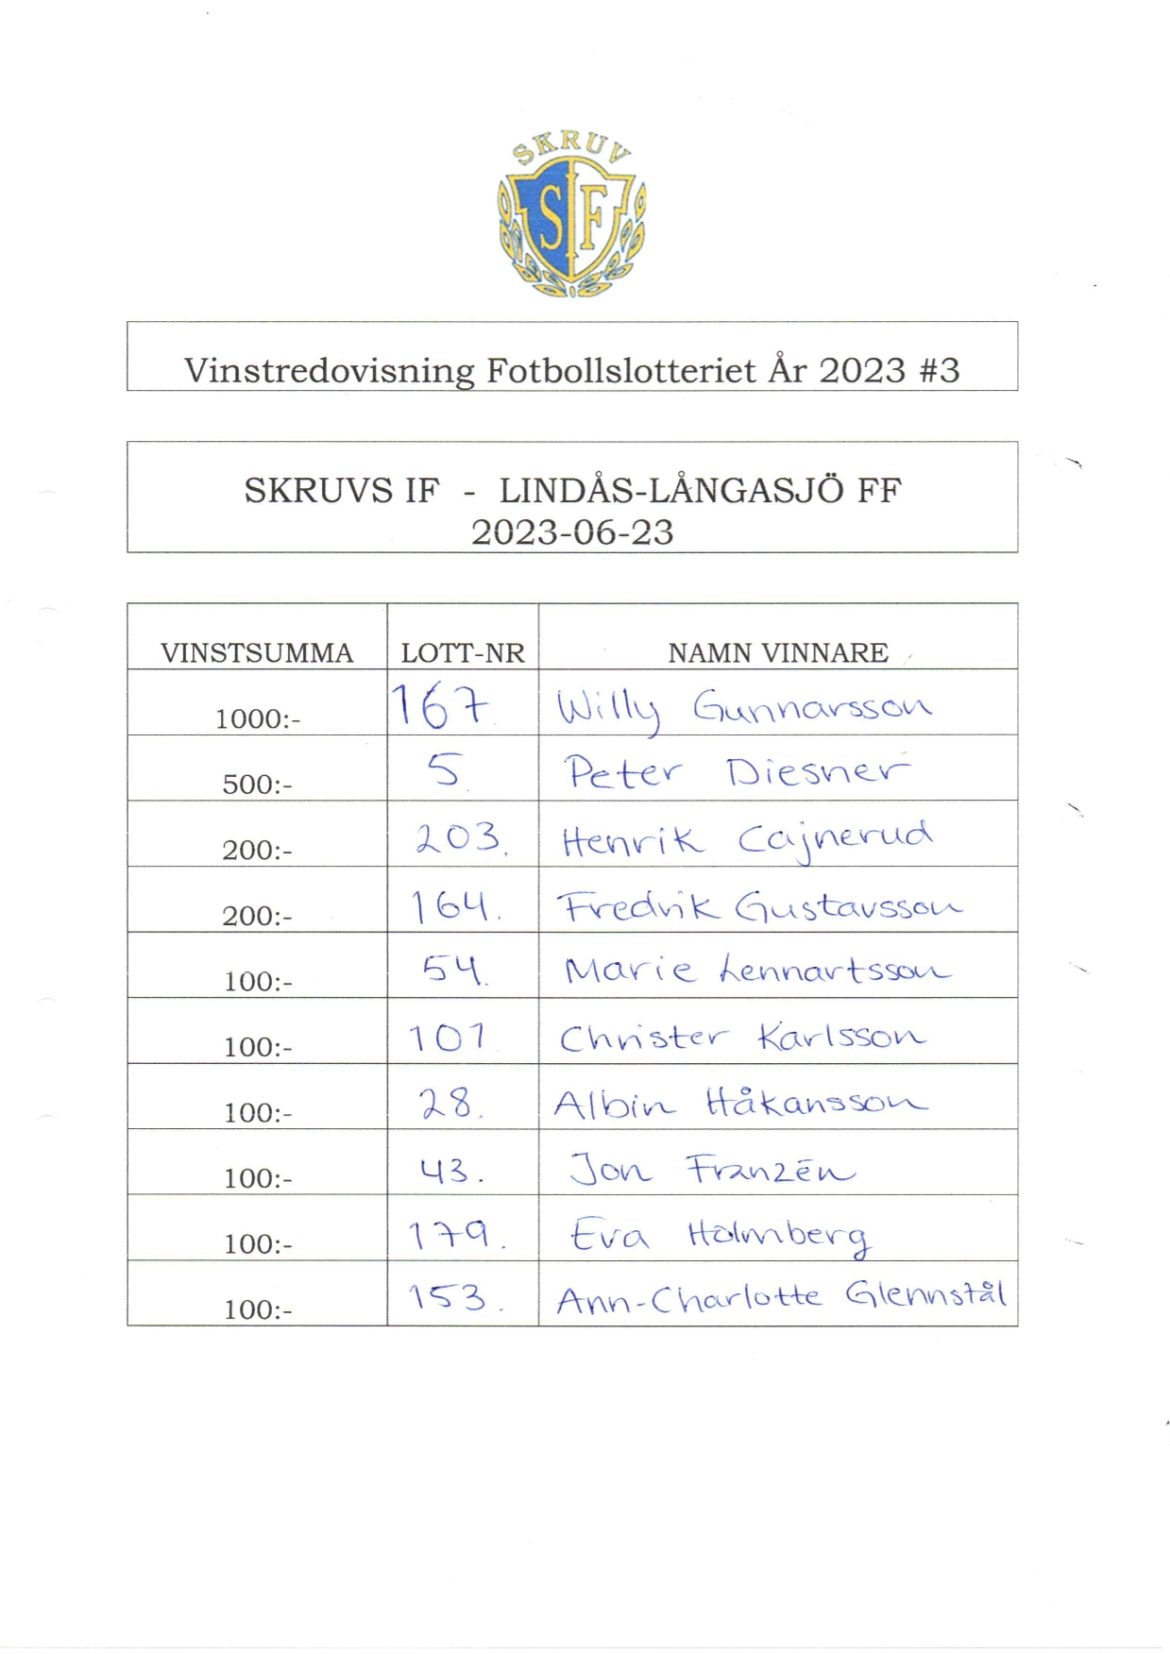 SKRUV
SIF
Vinstredovisning Fotbollslotteriet År 2023 #3
SKRUVS IF - LINDÅS-LÅNGASJÖ FF
2023-06-23
VINSTSUMMA LOTT-NR NAMN VINNARE
1000:- 167 Willy Gunnarsson
500:- 5 Peter Diesner
200:- 203. Henrik Cajnerud
200:- 164. Fredrik Gustavsson
100:- 54. Marie Lennartsson
100:- 101 Christer Karlsson
100:- 28. Albin Håkansson
100:- 43. Jon Franzén
100:- 179. Eva Holmberg
100:- 153. Ann-Charlotte Glennstål